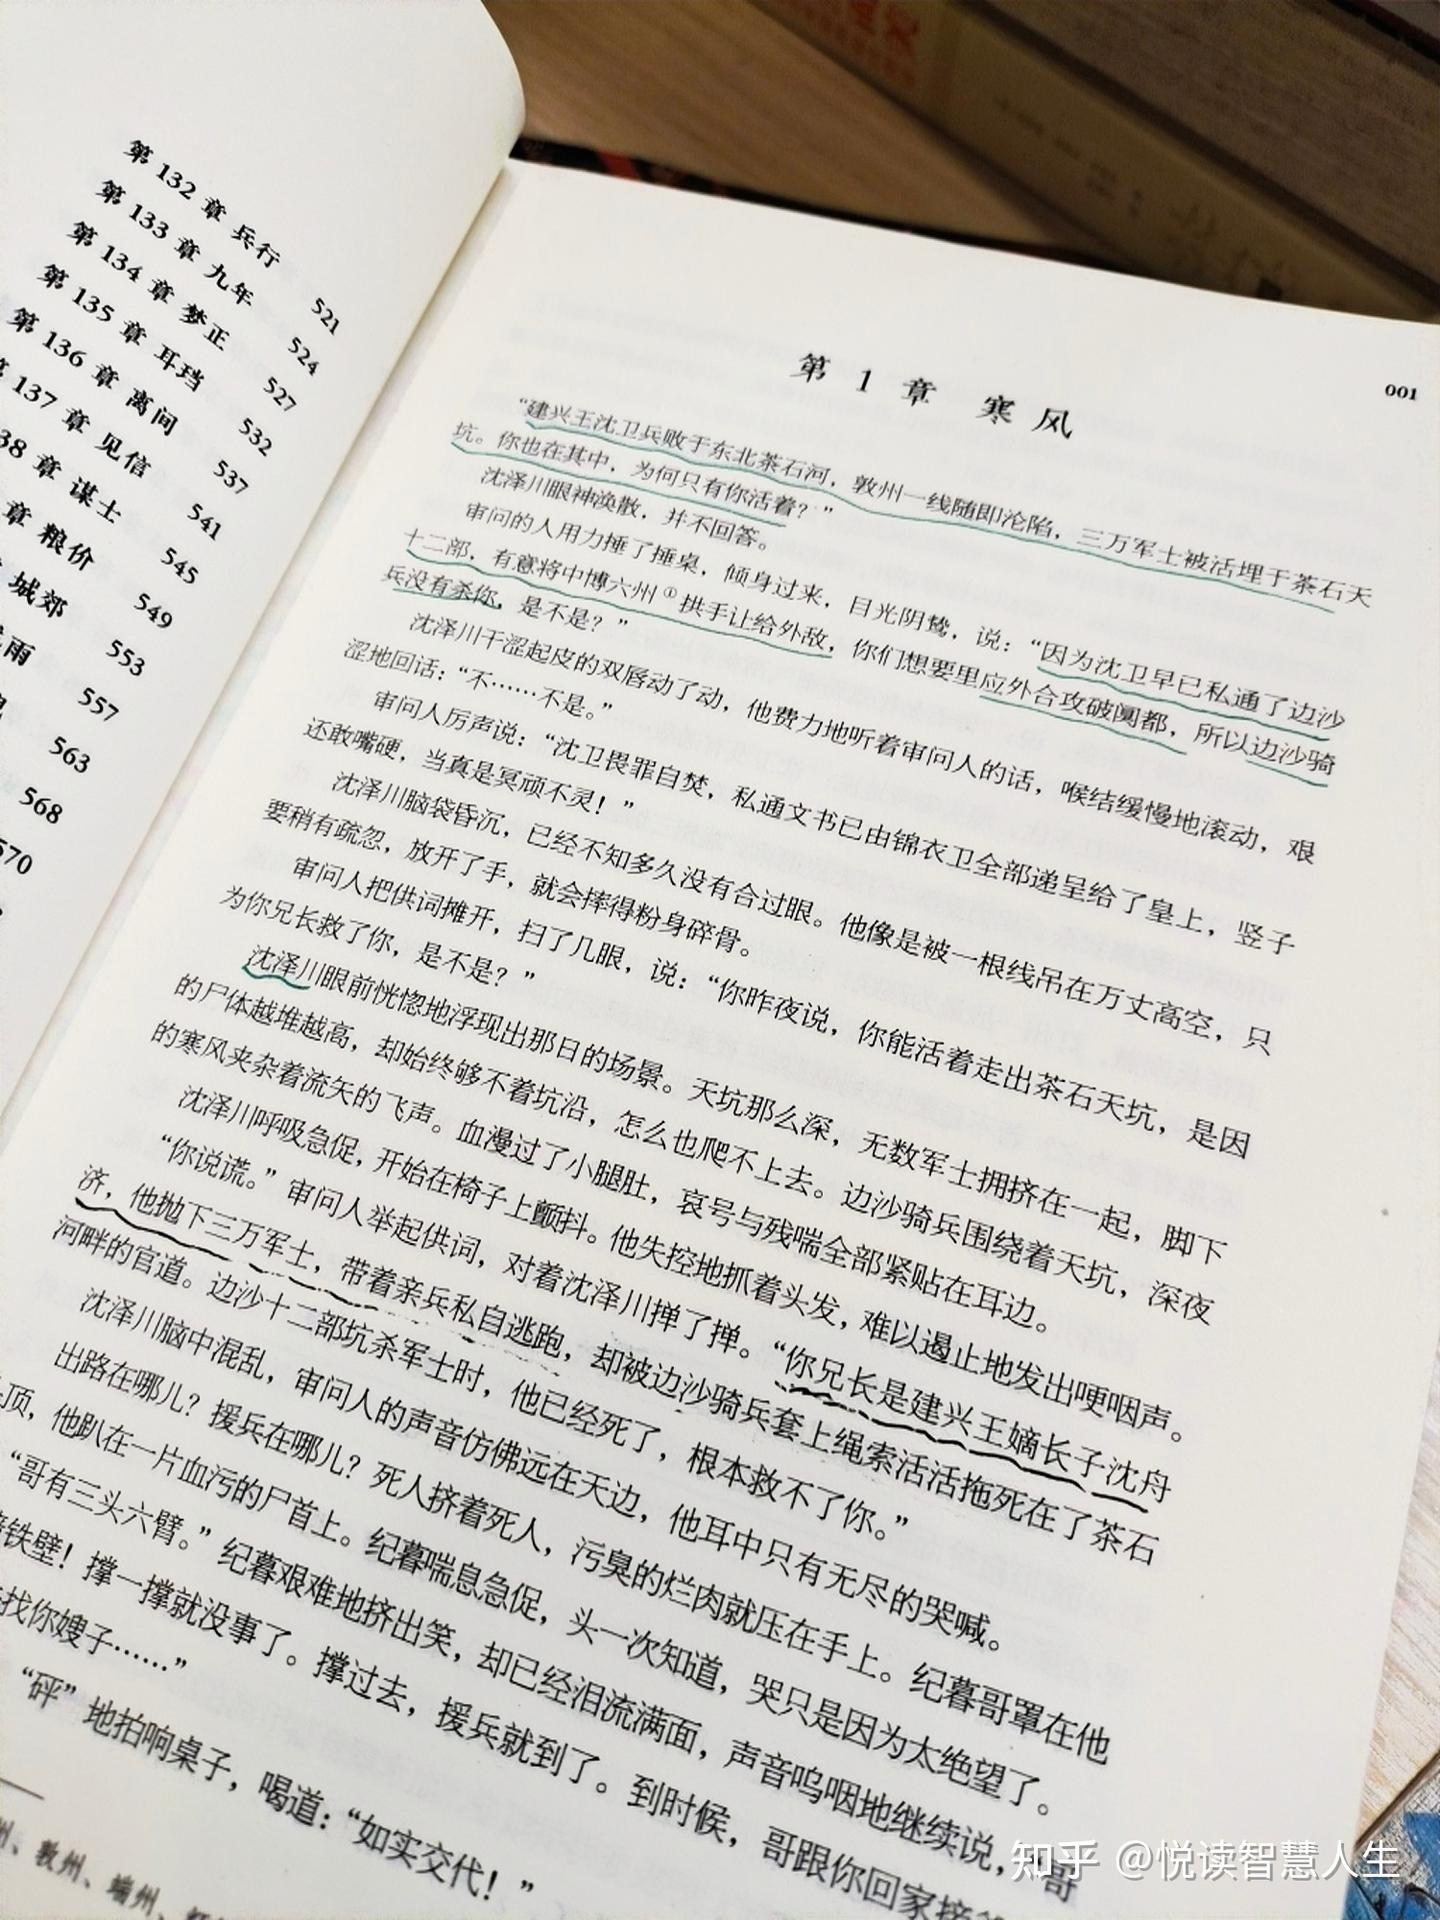 第 132 章 兵行 521
第 133 章 九年 524
第 134 章 梦正 527
第 135 章 耳珰 532
第 136 章 离间 537
137 章 见信 541
38 章 谋士 545
章 粮价 549
城郊 553
雨 557
563
568
570
001
第 1 章 寒风
“建兴王沈卫兵败于东北茶石河，敦州一线随即沦陷，三万军士被活埋于茶石天
坑。你也在其中，为何只有你活着？”
沈泽川眼神涣散，并不回答。
审问的人用力捶了捶桌，倾身过来，目光阴鸷，说：“因为沈卫早已私通了边沙
十二部，有意将中博六州①拱手让给外敌，你们想要里应外合攻破阒都，所以边沙骑
兵没有杀你，是不是？”
沈泽川干涩起皮的双唇动了动，他费力地听着审问人的话，喉结缓慢地滚动，艰
涩地回话：“不……不是。”
审问人厉声说：“沈卫畏罪自焚，私通文书已由锦衣卫全部递呈给了皇上，竖子
还敢嘴硬，当真是冥顽不灵！”
沈泽川脑袋昏沉，已经不知多久没有合过眼。他像是被一根线吊在万丈高空，只
要稍有疏忽，放开了手，就会摔得粉身碎骨。
审问人把供词摊开，扫了几眼，说：“你昨夜说，你能活着走出茶石天坑，是因
为你兄长救了你，是不是？”
沈泽川眼前恍惚地浮现出那日的场景。天坑那么深，无数军士拥挤在一起，脚下
的尸体越堆越高，却始终够不着坑沿，怎么也爬不上去。边沙骑兵围绕着天坑，深夜
的寒风夹杂着流矢的飞声。血漫过了小腿肚，哀号与残喘全部紧贴在耳边。
沈泽川呼吸急促，开始在椅子上颤抖。他失控地抓着头发，难以遏止地发出哽咽声。
“你说谎。”审问人举起供词，对着沈泽川掸了掸。“你兄长是建兴王嫡长子沈舟
济，他抛下三万军士，带着亲兵私自逃跑，却被边沙骑兵套上绳索活活拖死在了茶石
河畔的官道。边沙十二部坑杀军士时，他已经死了，根本救不了你。”
沈泽川脑中混乱，审问人的声音仿佛远在天边，他耳中只有无尽的哭喊。
出路在哪儿？援兵在哪儿？死人挤着死人，污臭的烂肉就压在手上。纪暮哥罩在他
顶，他趴在一片血污的尸首上。纪暮喘息急促，头一次知道，哭只是因为太绝望了。
“哥有三头六臂。”纪暮艰难地挤出笑，却已经泪流满面，声音呜咽地继续说，“哥
铁壁！撑一撑就没事了。撑过去，援兵就到了。到时候，哥跟你回家接
找你嫂子……”
“砰”地拍响桌子，喝道：“如实交代！”
州、敦州、端州、
知乎 @悦读智慧人生